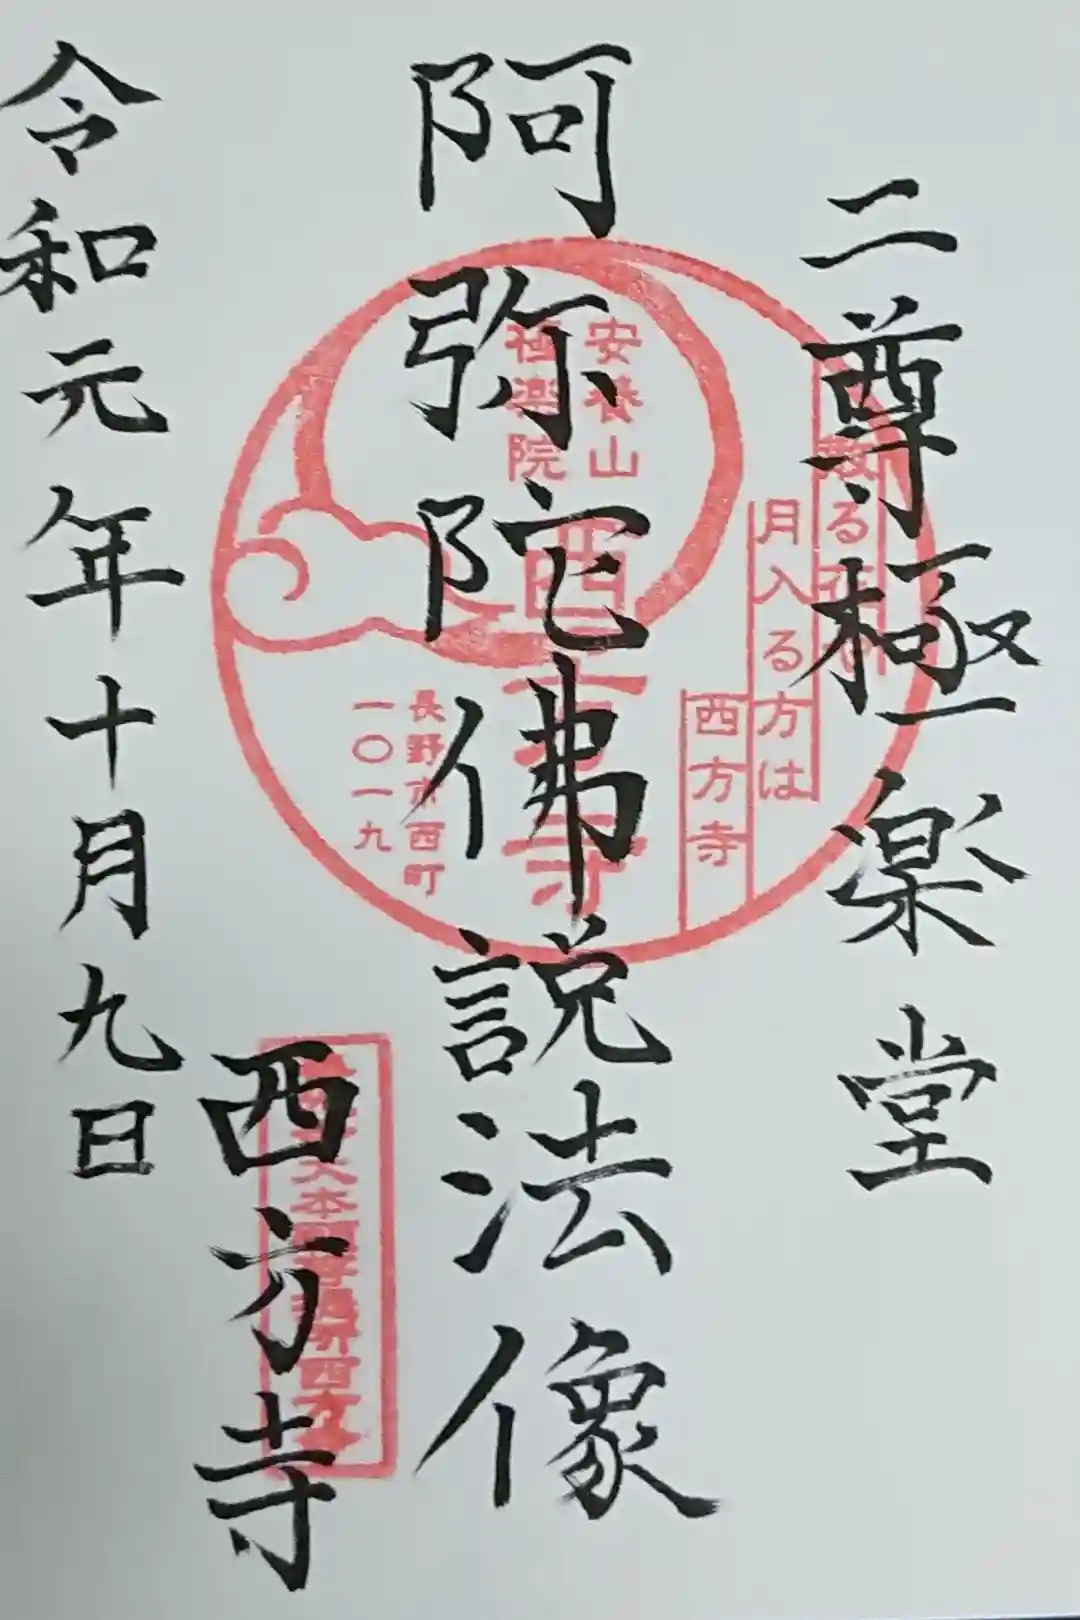 二尊極楽堂
阿弥陀佛説法像
西方寺
令和元年十月九日
散る
月入る方は
西方寺
安養山
極楽院
西方寺
長野市西町
一〇一九
大本願
西方寺